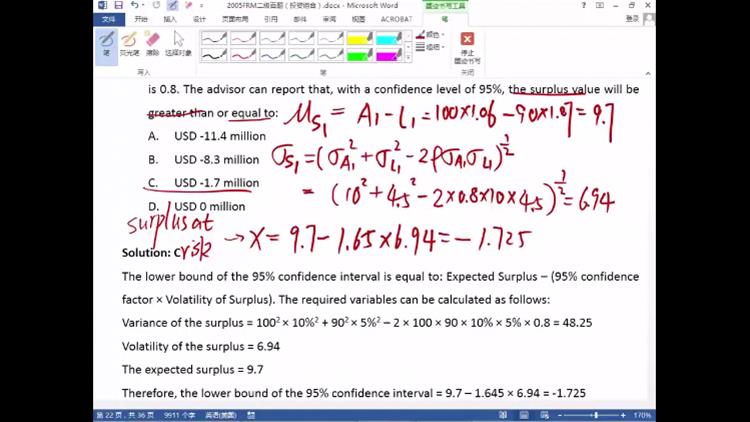 2005FRM二级百题（投资组合）.docx - Microsoft Word
墨迹书写工具
文件 开始 插入 设计 页面布局 引用 邮件 审阅 视图 ACROBAT 笔 登录
笔 荧光笔 橡皮擦 选择对象 颜色 粗细 停止墨迹书写
写入 笔
is 0.8. The advisor can report that, with a confidence level of 95%, the surplus value will be
greater than or equal to: μS₁ = A₁ - L₁ = 100×1.06 - 90×1.07 = 9.7
A. USD -11.4 million
B. USD -8.3 million σS₁ = (σA₁² + σL₁² - 2ρσA₁σL₁)^1/2
C. USD -1.7 million = (10² + 4.5² - 2×0.8×10×4.5)^1/2 = 6.94
D. USD 0 million
surplus at risk → X = 9.7 - 1.65×6.94 = -1.725
Solution: C
The lower bound of the 95% confidence interval is equal to: Expected Surplus – (95% confidence
factor × Volatility of Surplus). The required variables can be calculated as follows:
Variance of the surplus = 100² × 10%² + 90² × 5%² – 2 × 100 × 90 × 10% × 5% × 0.8 = 48.25
Volatility of the surplus = 6.94
The expected surplus = 9.7
Therefore, the lower bound of the 95% confidence interval = 9.7 – 1.645 × 6.94 = -1.725
第 22 页，共 36 页 9911 个字 英语(美国) 170%